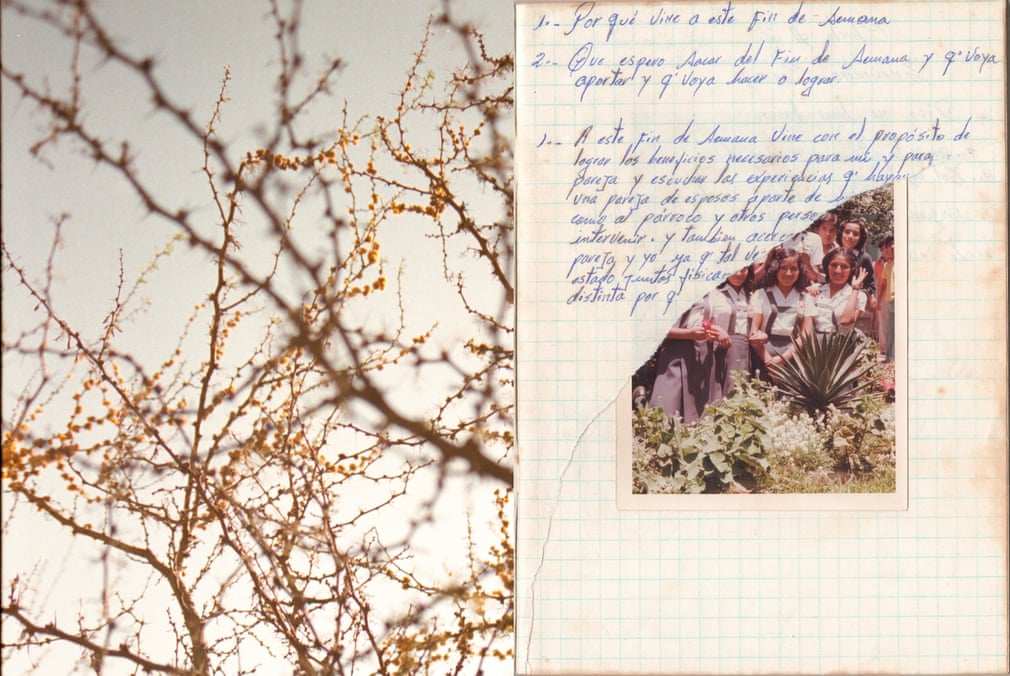 1.- Por qué vine a este fin de semana
2.- Que espero sacar del fin de semana y q' voy a
aportar y q' voy a hacer o lograr.
1.- A este fin de semana vine con el propósito de
lograr los beneficios necesarios para mí y para
pareja y escuchar las experiencias q' hayan
una pareja de esposos aparte de
como al párroco y otros person
intervenir. y tambien acerc
pareja y yo ya q' tal ve
estado juntos
distinta por q'